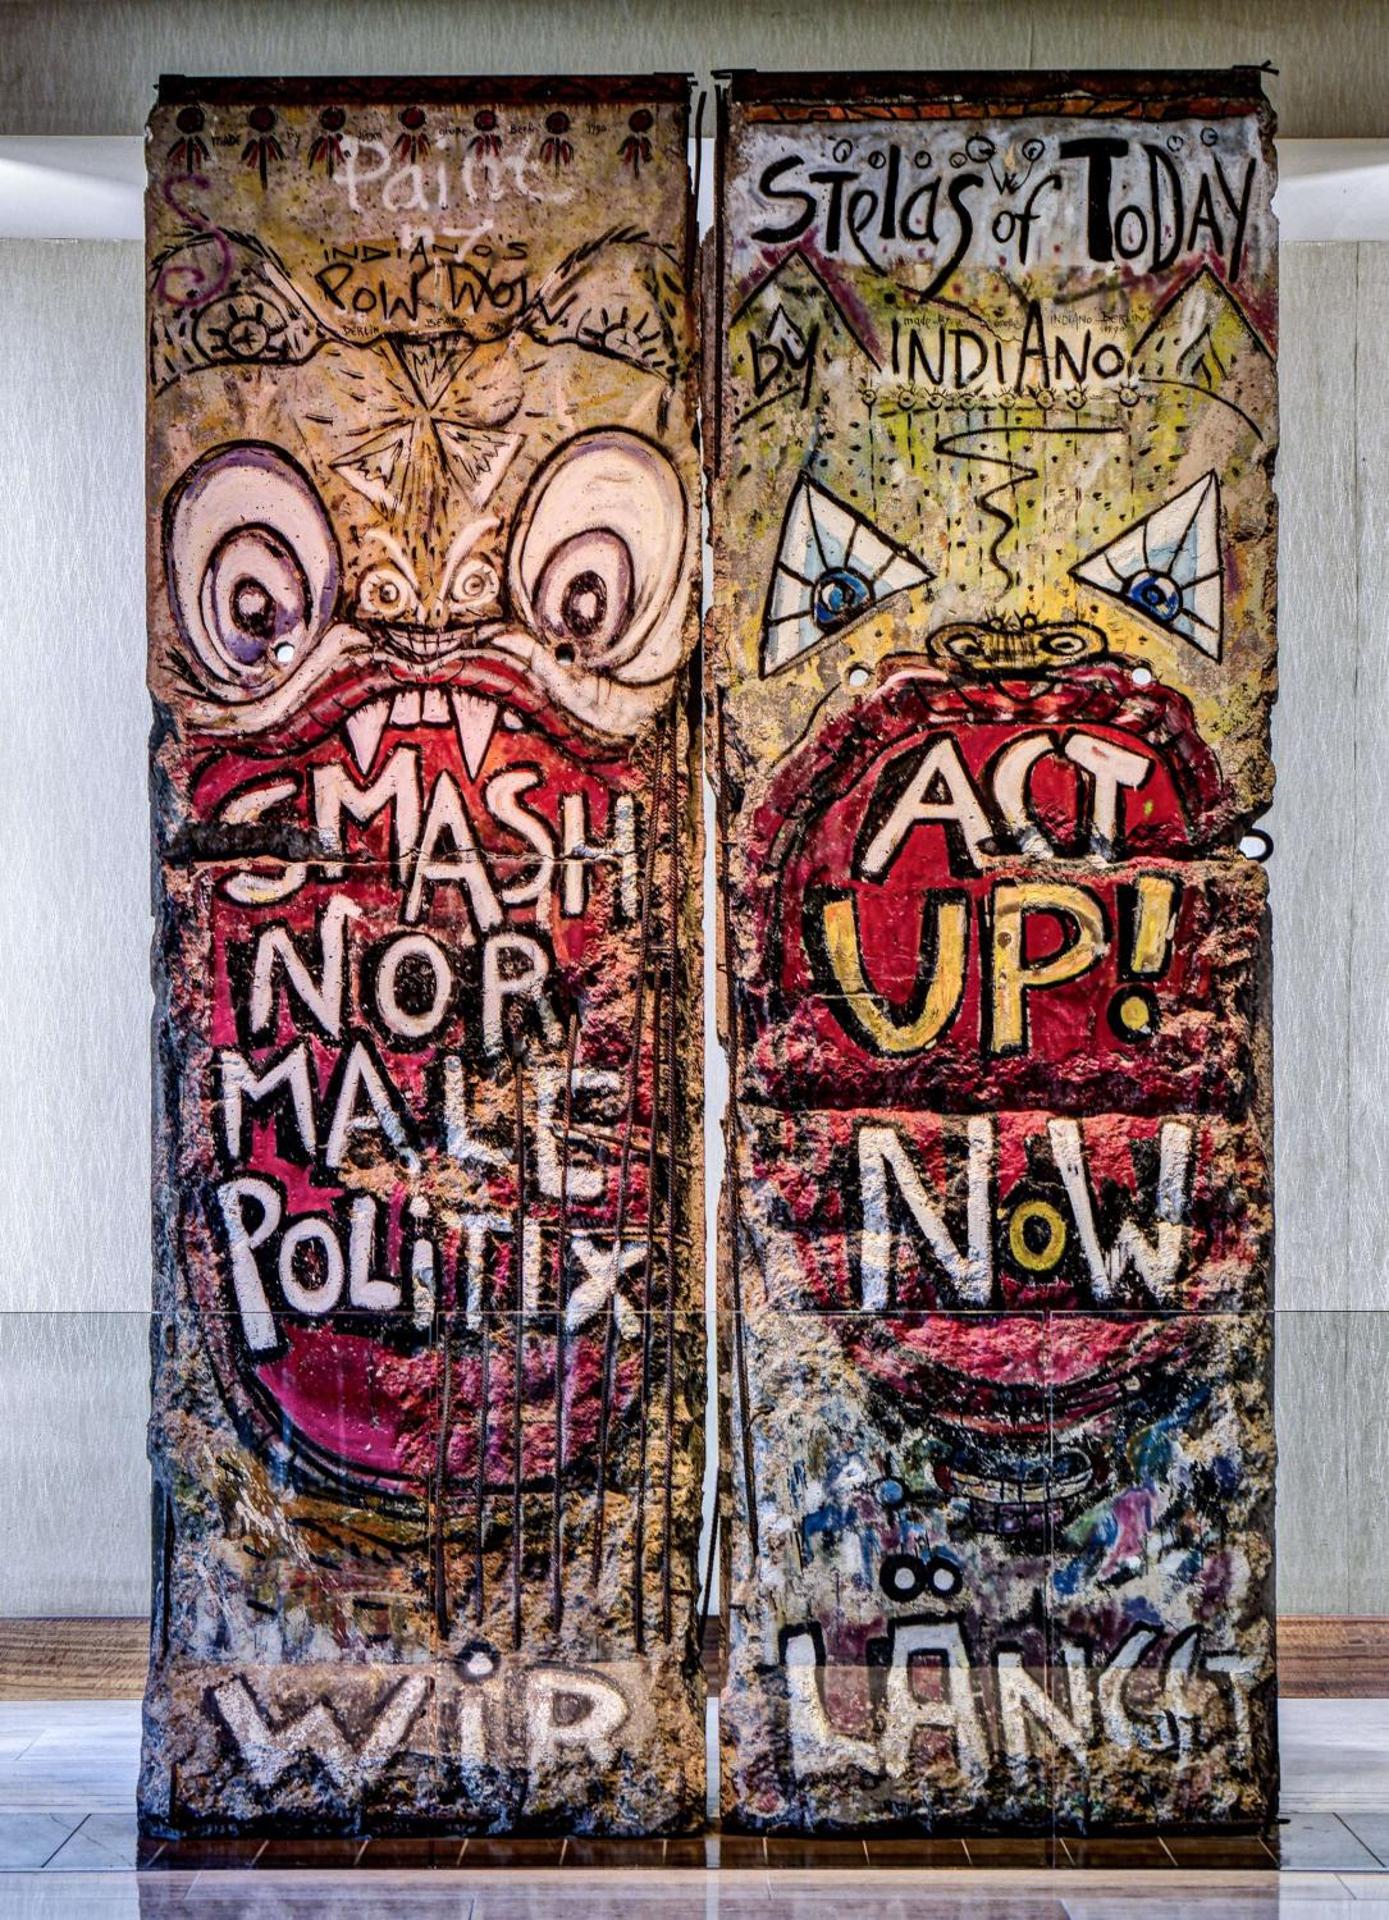 made by Berlin 1990
Paint
INDIANO'S
POW WOW
BERLIN BEARS 1990
SMASH
NOR
MALE
POLiTIX
WiR
STelas of ToDAY
made by INDIANO BERLIN 1990
by INDIANO
ACT
UP!
NoW
LÄNGST